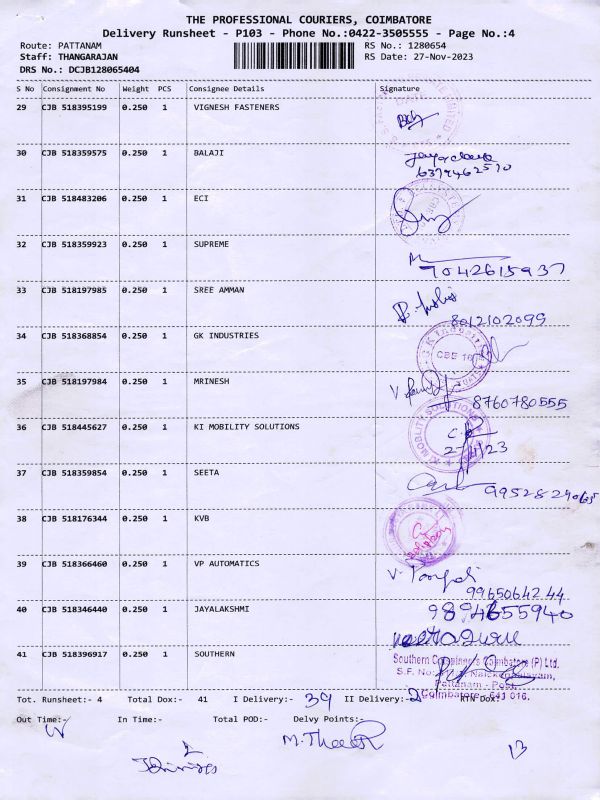 THE PROFESSIONAL COURIERS, COIMBATORE
Delivery Runsheet - P103 - Phone No.:0422-3505555 - Page No.:4
Route: PATTANAM RS No.: 1280654
Staff: THANGARAJAN RS Date: 27-Nov-2023
DRS No.: DCJB128065404
S No Consignment No Weight PCS Consignee Details Signature
29 CJB 518395199 0.250 1 VIGNESH FASTENERS
30 CJB 518359575 0.250 1 BALAJI
6379462570
31 CJB 518483206 0.250 1 ECI
32 CJB 518359923 0.250 1 SUPREME
7042615937
33 CJB 518197985 0.250 1 SREE AMMAN
8012102099
34 CJB 518368854 0.250 1 GK INDUSTRIES
GK Industri
CBE 16
35 CJB 518197984 0.250 1 MRINESH
8760780555
36 CJB 518445627 0.250 1 KI MOBILITY SOLUTIONS
KI MOBILITY SOLUTIONS
27/11/23
37 CJB 518359854 0.250 1 SEETA
38 CJB 518176344 0.250 1 KVB
39 CJB 518366460 0.250 1 VP AUTOMATICS
9965064244
40 CJB 518346440 0.250 1 JAYALAKSHMI
9894655940
41 CJB 518396917 0.250 1 SOUTHERN
Southern Coimbatore (P) Ltd.
S.F. No:
Pattanam - Post,
Coimbatore - 641 016.
Tot. Runsheet:- 4 Total Dox:- 41 I Delivery:- 39 II Delivery:- 2 RTN Dox:
Out Time:- In Time:- Total POD:- Delvy Points:-